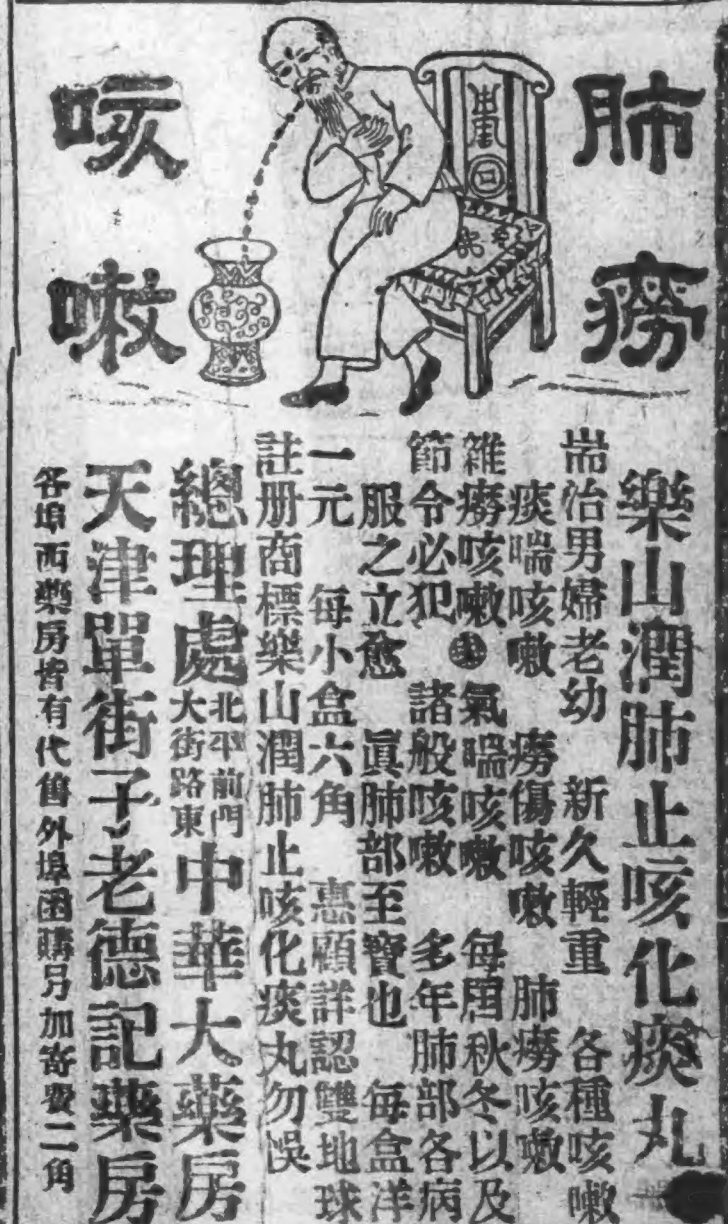 肺癆
咳嗽
樂山潤肺止咳化痰丸
耑治男婦老幼 新久輕重 各種咳嗽
痰喘咳嗽 癆傷咳嗽 肺癆咳嗽
雜癆咳嗽 氣喘咳嗽 每屆秋冬以及
節令必犯 諸般咳嗽 多年肺部各病
服之立愈 眞肺部至寶也 每盒洋
一元 每小盒六角 惠顧詳認雙地球
註册商標樂山潤肺止咳化痰丸勿悞
總理處 北平前門大街路東 中華大藥房
天津單街子老德記藥房
各埠西藥房皆有代售外埠函購另加寄費二角